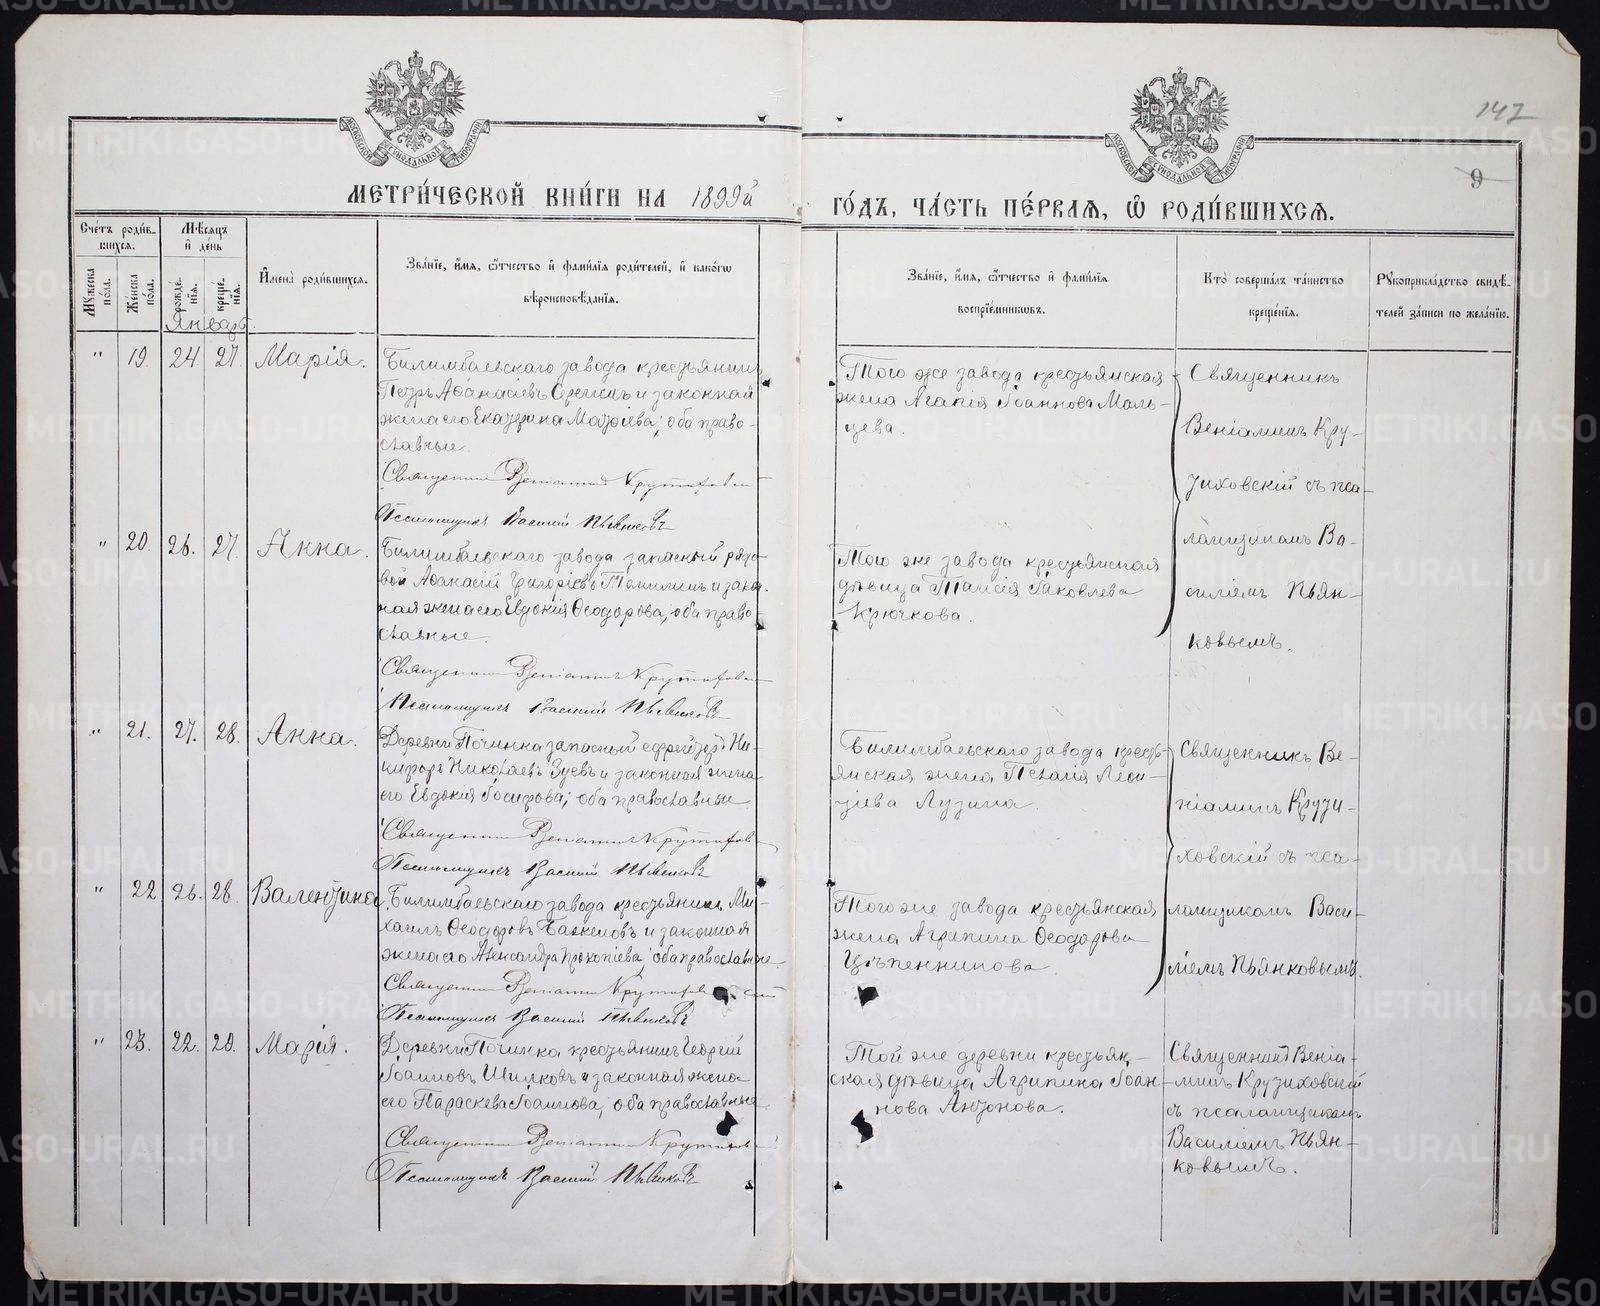 147
9
МОСКОВСКОЙ СѴНОДАЛЬНОЙ ТИПОГРАФІИ
МОСКОВСКОЙ СѴНОДАЛЬНОЙ ТИПОГРАФІИ
МЕТРИ́ЧЕСКОЙ КНИ́ГИ НА 1899й ГО́ДЪ, ЧА́СТЬ ПЕ́РВАЯ, Ѿ РОДИ́ВШИХСЯ.
Сче́тъ роди́в-
шихся.
Му́жеска по́ла.
Же́нска по́ла.
Мѣ́сяцъ
и де́нь
рожде́-
нія.
креще́-
нія.
Имена̀ роди́вшихся.
Зва́ніе, и́мя, ѻ́тчество и фами́лія роди́телей, и како́гѡ
вѣроисповѣ́данія.
Зва́ніе, и́мя, ѻ́тчество и фами́лія
воспріе́мниковъ.
Кто̀ соверша́лъ та́инство
креще́нія.
Рукоприкла́дство свидѣ́-
телей за́писи по жела́нію.
Январь.
" 19. 24. 27. Марія.
Билимбаевскаго завода крестьянинъ
Петръ Аѳанасіевъ и законная
жена его Екатерина Матѳіева; оба право-
славные.
Священникъ Веніаминъ Крутиховскій
Псаломщикъ Василій Пьянковъ
Того же завода крестьянская
жена Агапія Іоаннова Маль-
цева.
Священникъ
Веніаминъ Кру-
тиховскій съ пса-
ломщикомъ Ва-
силіемъ Пьян-
ковымъ.
" 20. 26. 27. Анна.
Билимбаевскаго завода запасный рядо-
вой Аѳанасій Григоріевъ Томилинъ и закон-
ная жена его Евдокія Ѳеодорова; оба право-
славные.
Священникъ Веніаминъ Крутиховскій
Псаломщикъ Василій Пьянковъ
Того же завода крестьянская
дѣвица Таисія Іаковлева
Крючкова.
" 21. 27. 28. Анна.
Деревни Починка запасный ефрейторъ Ни-
кифоръ Николаевъ Зуевъ и законная жена
его Евдокія Іосифова; оба православные.
Священникъ Веніаминъ Крутиховскій
Псаломщикъ Василій Пьянковъ
Билимбаевскаго завода кресть-
янская жена Пелагія Леон-
тіева Лузина.
Священникъ Ве-
ніаминъ Крути-
ховскій съ пса-
ломщикомъ Васи-
ліемъ Пьянковымъ.
" 22 26. 28. Валентина
Билимбаевскаго завода крестьянинъ Ми-
хаилъ Ѳеодоровъ Баженовъ и законная
жена его Александра Прокопіева; оба православные.
Священникъ Веніаминъ Крутиховскій
Псаломщикъ Василій Пьянковъ
Того же завода крестьянская
жена Агрипина Ѳеодорова
Цѣпенникова.
" 23. 22. 29. Марія.
Деревни Починка крестьянинъ Георгій
Іоанновъ Шилковъ и законная жена
его Параскева Іоаннова; оба православные.
Священникъ Веніаминъ Крутиховскій
Псаломщикъ Василій Пьянковъ
Той же деревни крестьян-
ская дѣвица Агрипина Іоан-
нова Антонова.
Священникъ Веніа-
минъ Крутиховскій
съ псаломщикомъ
Василіемъ Пьян-
ковымъ.
METRIKI.GASO-URAL.RU